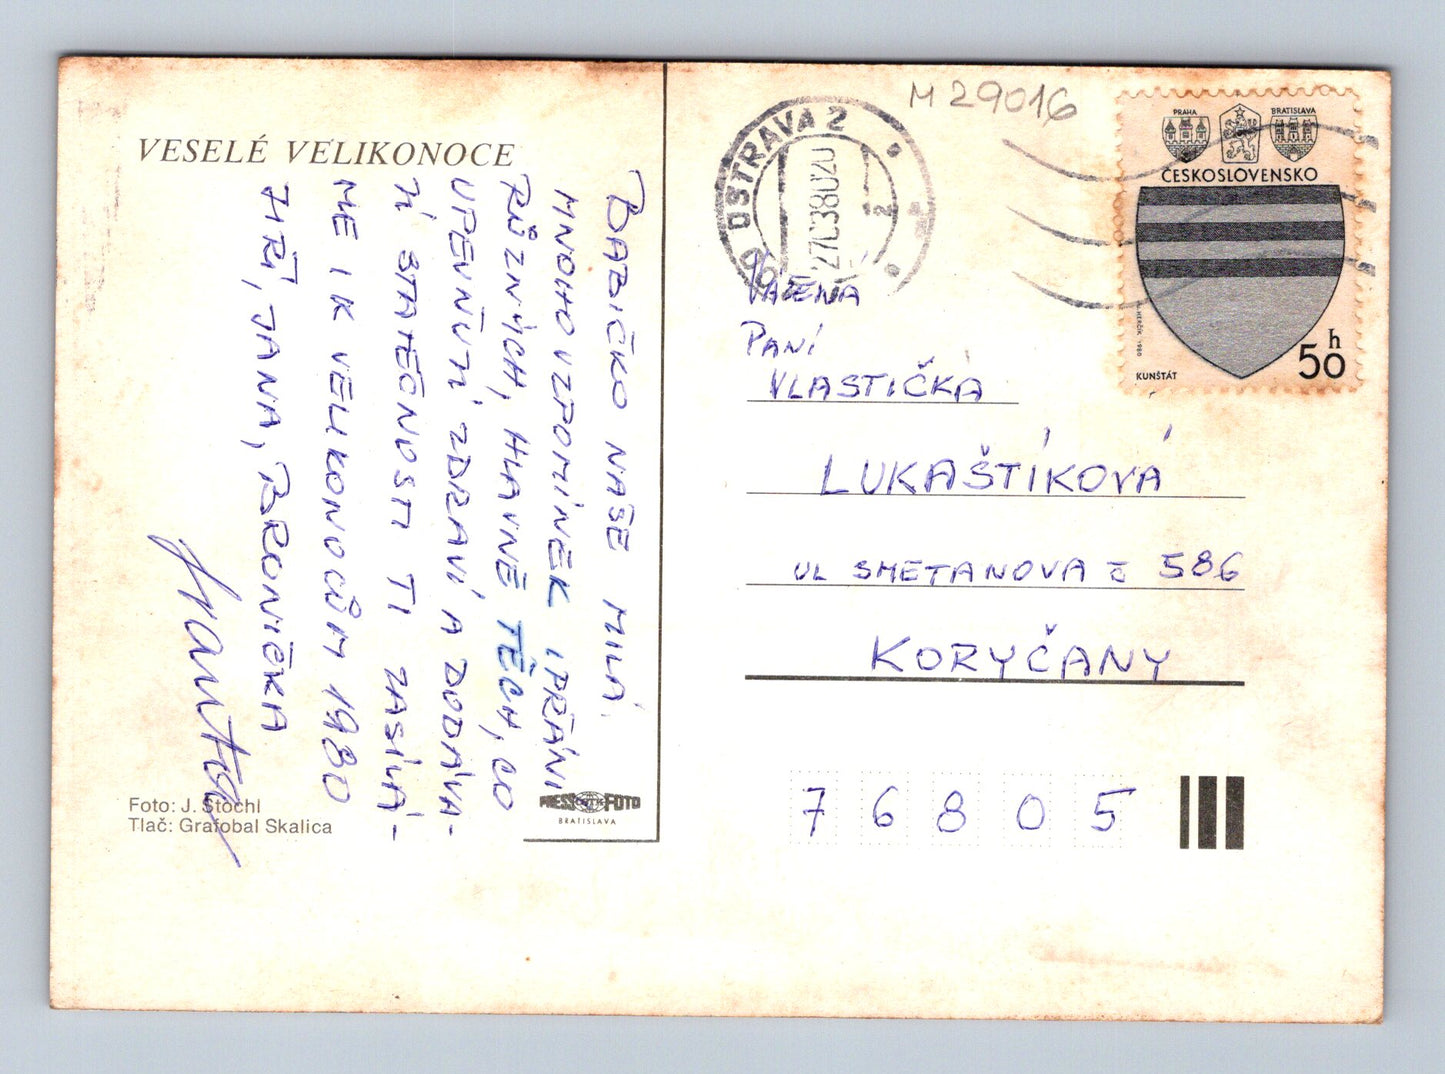 VESELÉ VELIKONOCE
BABIČKO NAŠE MILÁ.
MNOHO VZPOMÍNEK I PŘÁNI
RŮZNÝCH, HLAVNĚ TĚCH, CO
UPEVŇUTÍ ZDRAVÍ A DODÁVA-
JÍ STATEČNOSTI TI ZASÍLÁ-
ME I K VELIKONOCŮM 1980
JIŘÍ, JANA, BRONIČKA
Franta
Foto: J. Štochl
Tlač: Grafobal Skalica
PRESSFOTO
BRATISLAVA
M 29016
OSTRAVA 2
PRAHA
BRATISLAVA
ČESKOSLOVENSKO
J. HERČÍK 1980
KUNŠTÁT
50 h
VÁŽENÁ
PANÍ
VLASTIČKA
LUKAŠTÍKOVÁ
UL SMETANOVA č 586
KORYČANY
76805